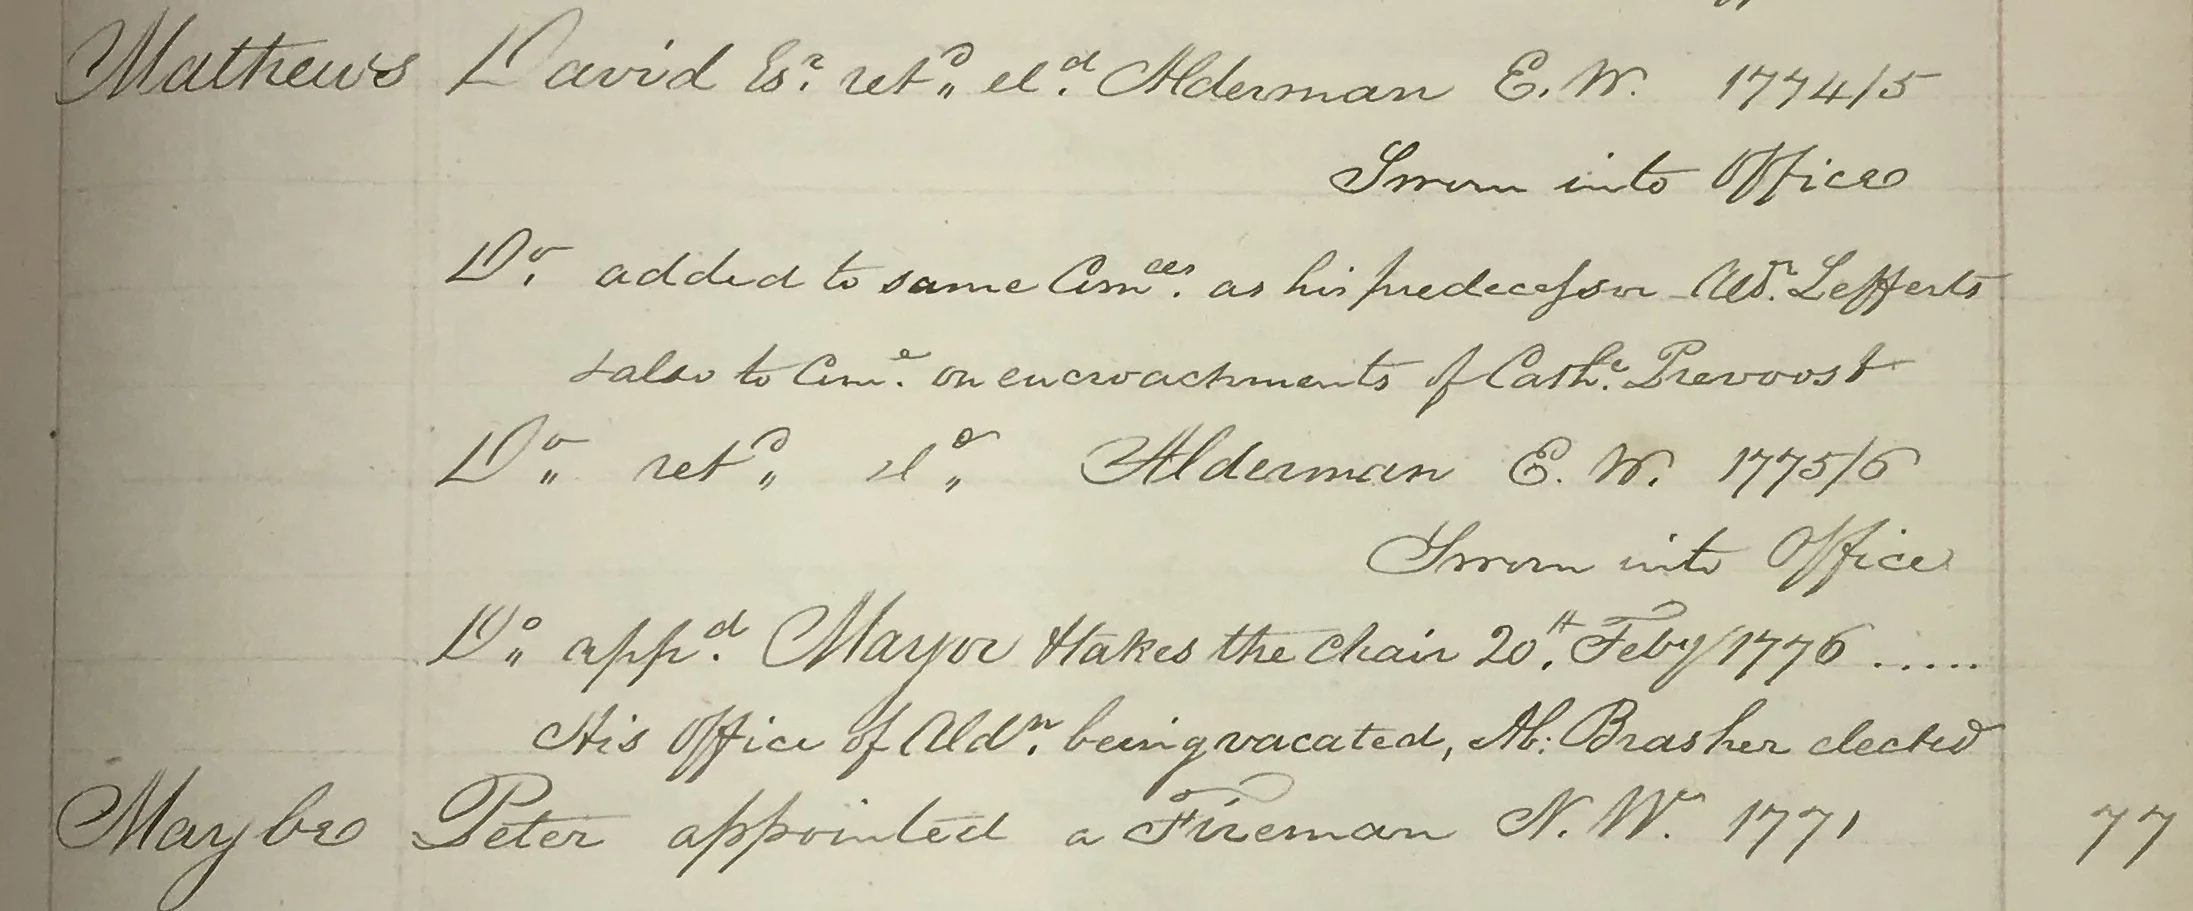 Mathews David Esr. retd. eld. Alderman E. W. 1774/5
Sworn into Office
Do. added to same Comees. as his predecessor Aldn. Lefferts
& also to Come. on encroachments of Cathe. Prevoost
Do. retd. eld. Alderman E. W. 1775/6
Sworn into Office
Do. appd. Mayor & takes the chair 20th. Feby 1776 .....
His Office of Aldn. being vacated, Ab: Brasher elected
Maybe Peter appointed a Fireman N. W. 1771 77